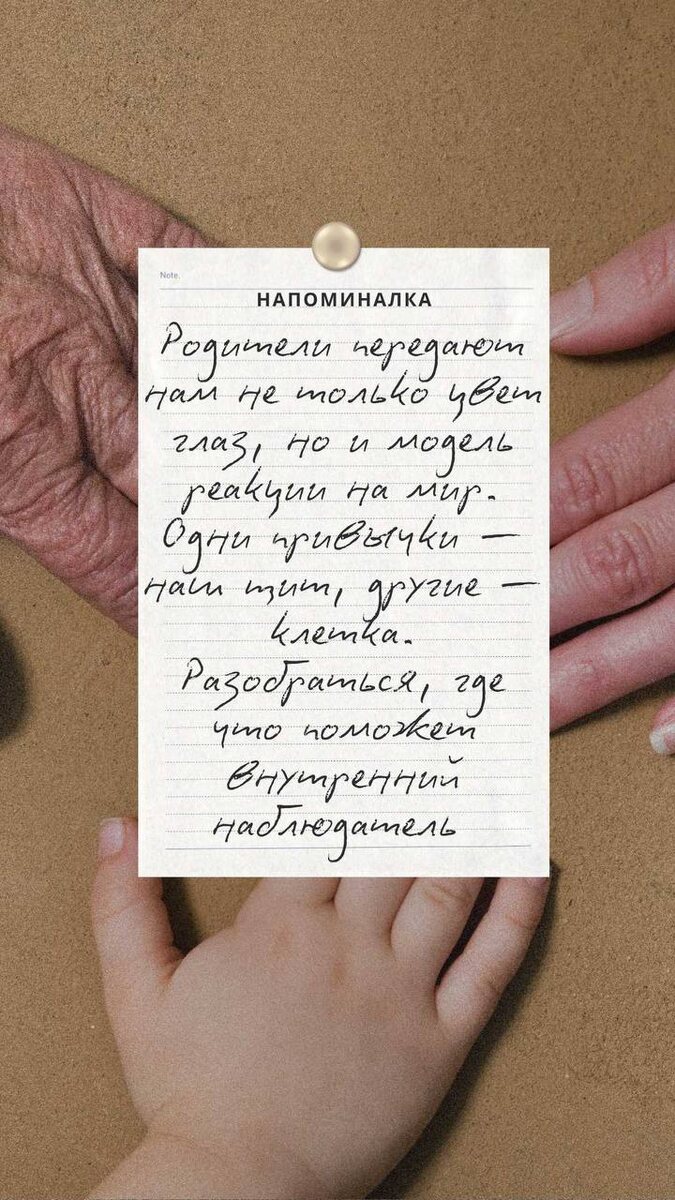 Note.
НАПОМИНАЛКА
Родители передают
нам не только цвет
глаз, но и модель
реакции на мир.
Одни привычки —
наш щит, другие —
клетка.
Разобраться, где
что поможет
внутренний
наблюдатель